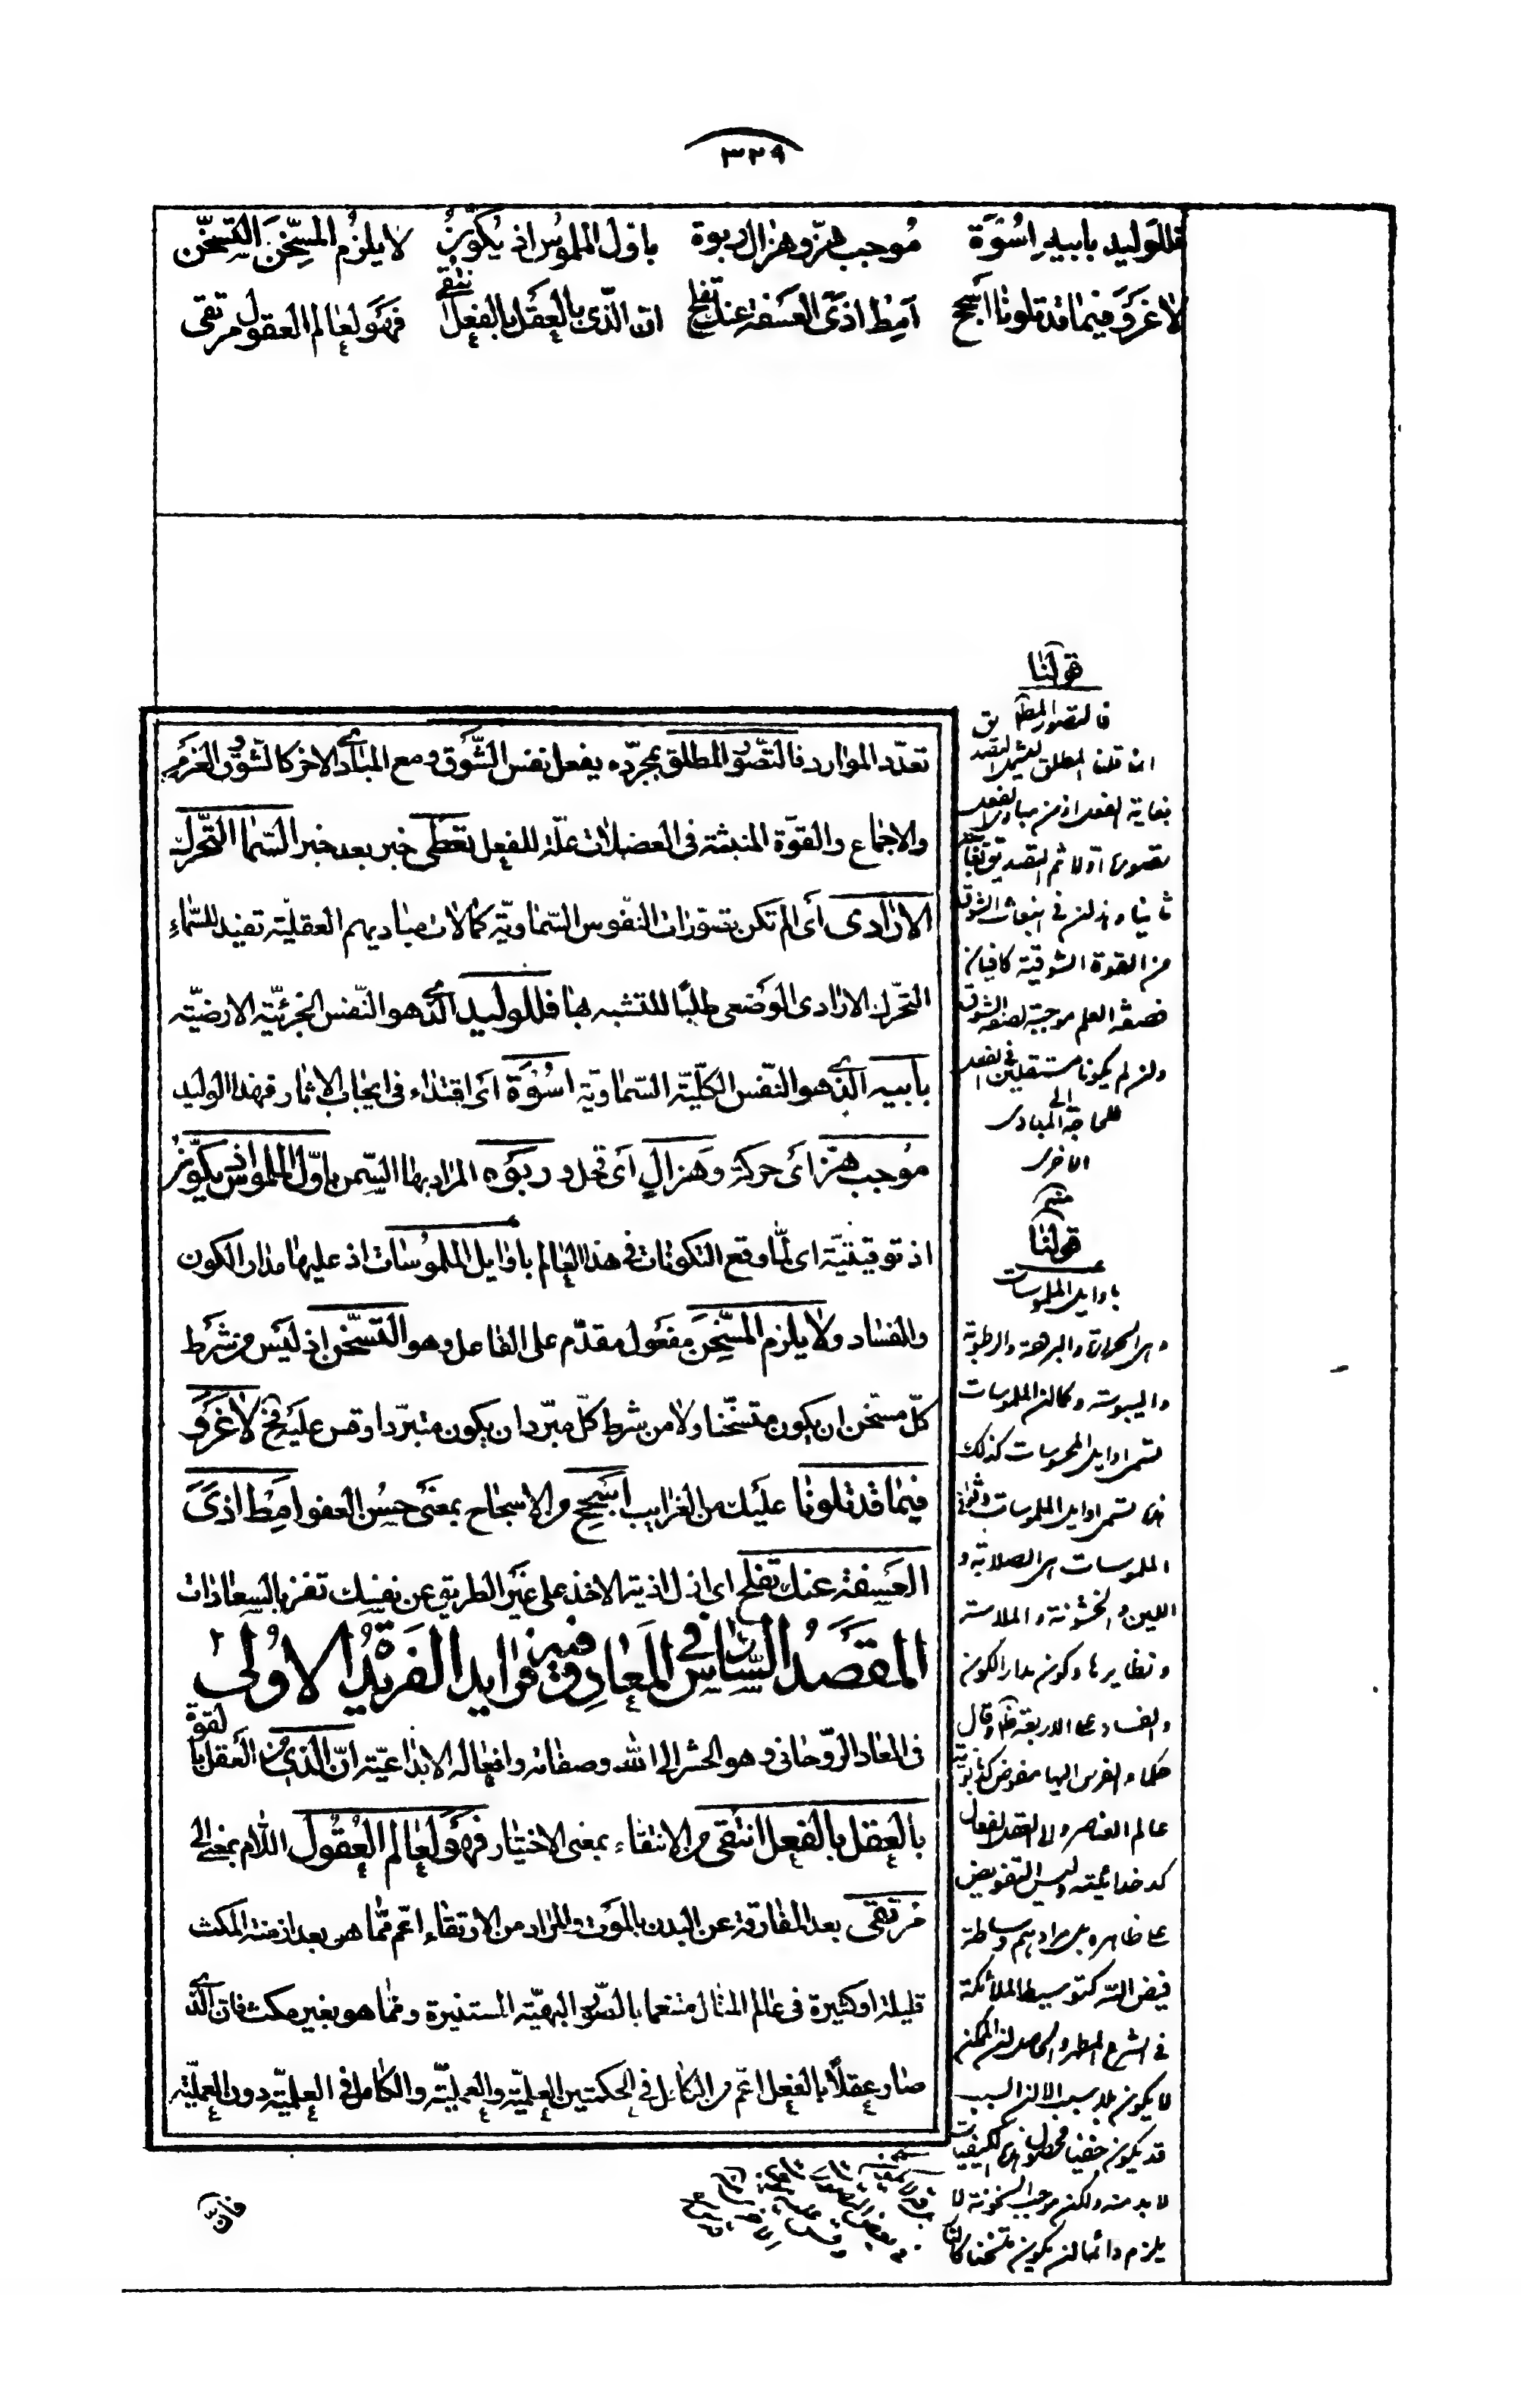 ٣٢٩
فللوليد بابيه اسوة موجب هز وهزال ربوة باول الملموس اذ يكون لا يلزم المسخن التسخن
لا غرو فيما قد تلونا اسجح امط اذى العسفة عنك تفلح ان الذى بالعقل بالفعل انتقى فهو لعالم العقول مرتقى
تعدد الموارد فالتصور المطلق بمجرده يفعل نفس الشوق ومع المبادى الاخر كالشوق والعزم
والاجماع والقوة المنبثة فى العضلات علة للفعل تعطى خبر بعد خبر السما التحرك
الارادى اى الم تكن تصورات النفوس السماوية كمالات مباديهم العقلية تفيد للسماء
التحرك الارادى الوضعى طلبا للتشبه بها فللوليد الذى هو النفس الجزئية الارضية
بابيه الذى هو النفس الكلية السماوية اسوة اى اقتداء فى ايجاب الاثار فهذا الوليد
موجب هز اى حركة وهزال اى تحلل وربوه المراد بها السمن باول الملموس اذ يكون
اذ توقيتية اى لما وقع التكونات فى هذا العالم باوايل الملموسات اذ عليها مدار الكون
والفساد ولا يلزم المسخن مفعول مقدم على الفاعل وهو التسخن اذ ليس من شرط
كل مسخن ان يكون متسخنا ولا من شرط كل مبرد ان يكون متبردا وقس عليه فح لا غرو
فيما قد تلونا عليك من الغرايب اسجح من الاسجاح بمعنى حسن العفو امط اذى
العسفة عنك تفلح اى ازل اذية الاخذ على غير الطريق عن نفسك تفز بالسعادات
المقصد السادس فى المعاد وفيه فرايد الفريدة الاولى
فى المعاد الروحانى وهو الحشر الى الله وصفاته وافعاله الابداعية ان الذى من العقل بالقوة
بالعقل بالفعل انتقى من الانتقاء بمعنى الاختيار فهو لعالم العقول اللام بمعنى الى
مرتقى بعد المفارقة عن البدن بالموت والمراد من الارتقاء اعم مما هو بعد ازمنة المكث
قليلة او كثيرة فى عالم المثال متنعما بالصور البهية المستنيرة ومما هو بغير مكث فان الذى
صار عقلا بالفعل اعم من الكامل فى الحكمتين العلمية والعملية والكامل فى العلمية دون العملية
فان
قولنا
فالتصور المطلق
ان قلنا المطلق ليشمل التصديق
بغاية الفعل اذ من مبادى الفعل
تصورها اولا ثم التصديق بغايته
ثانيا وهذان فى انبعاث الشوق
من القوة الشوقية كافيان
فصفة العلم موجبة لصفة الشوق
وان لم يكونا مستقلين فى الفعل
للحاجة الى المبادى
الاخرى
منه
قولنا
باوايل الملموسات
هى الحرارة والبرودة والرطوبة
واليبوسة وكما ان الملموسات
تسمى اوايل المحسوسات كذلك
هذه تسمى اوايل الملموسات وثوانى
الملموسات هى الصلابة و
اللين والخشونة والملاسة
ونظايرها وكون مدار الكون
والفساد على الاربعة ظاهر وقال
حكماء الفرس اليها مفوض كدبانوية
عالم العناصر والى العقل الفعال
كدخدائيته وليس التفويض
على ظاهره بل مرادهم وساطة
فيض الله كتوسيط الملائكة
فى الشرع المطهر والحاصل ان الممكن
لا يكون بلا سبب الا ان السبب
قد يكون خفيا فحصول هذه الكيفيات
لا بد منه ولكن موجب السخونة لا
يلزم دائما ان يكون متسخنا كالنار